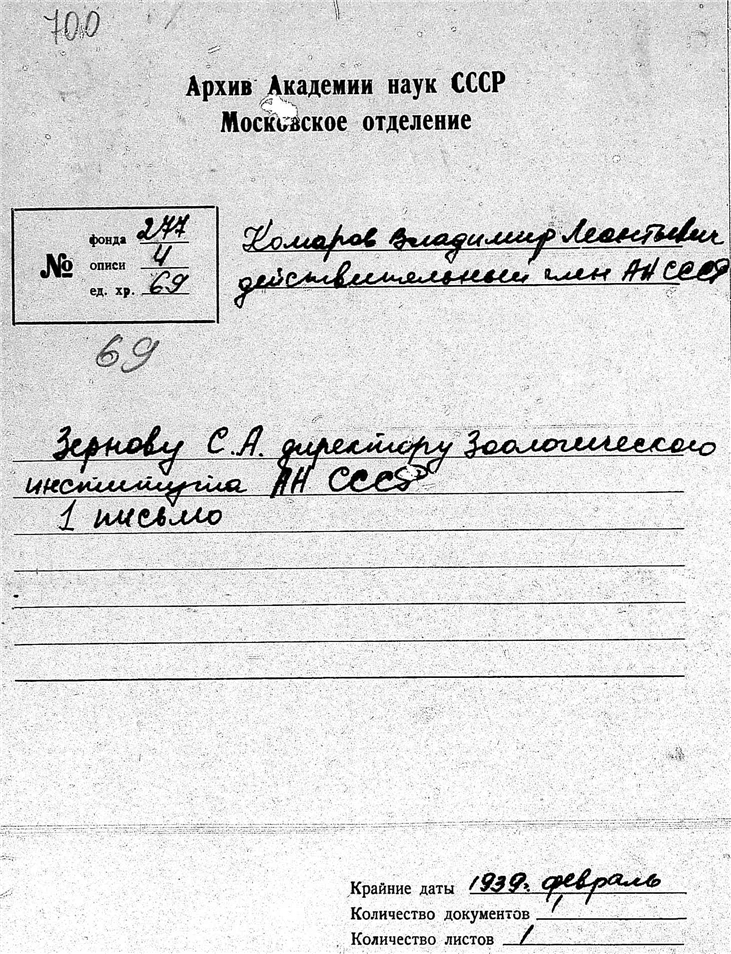 700
Архив Академии наук СССР
Московское отделение
№
фонда 277
описи 4
ед. хр. 69
Комаров Владимир Леонтьевич
действительный член АН СССР
69
Зернову С.А. директору Зоологического
института АН СССР
1 письмо
Крайние даты 1939г. февраль
Количество документов 1
Количество листов 1